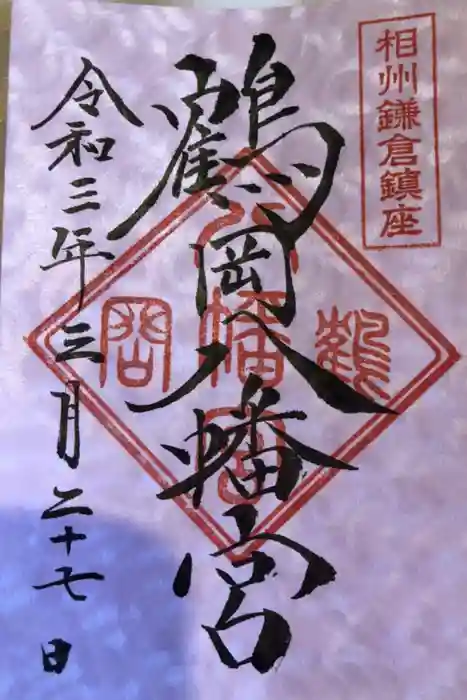 相州鎌倉鎮座
鶴岡八幡宮
鶴岡八幡宮
令和三年三月二十七日